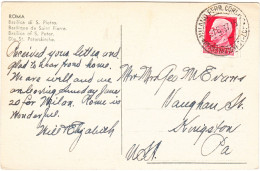 ROMA
Basilica di S. Pietro.
Basilique de Saint Pierre.
Basilica of S. Peter.
Die St. Peterskirche.
Received your letter and
glad to hear from home.
We are well and we
are leaving Sunday June
20 for Milan. Rome is
wonderful.
Will Elizabeth
Mr + Mrs Geo M Evans
Vaughan St.
Kingston
Pa
USA.